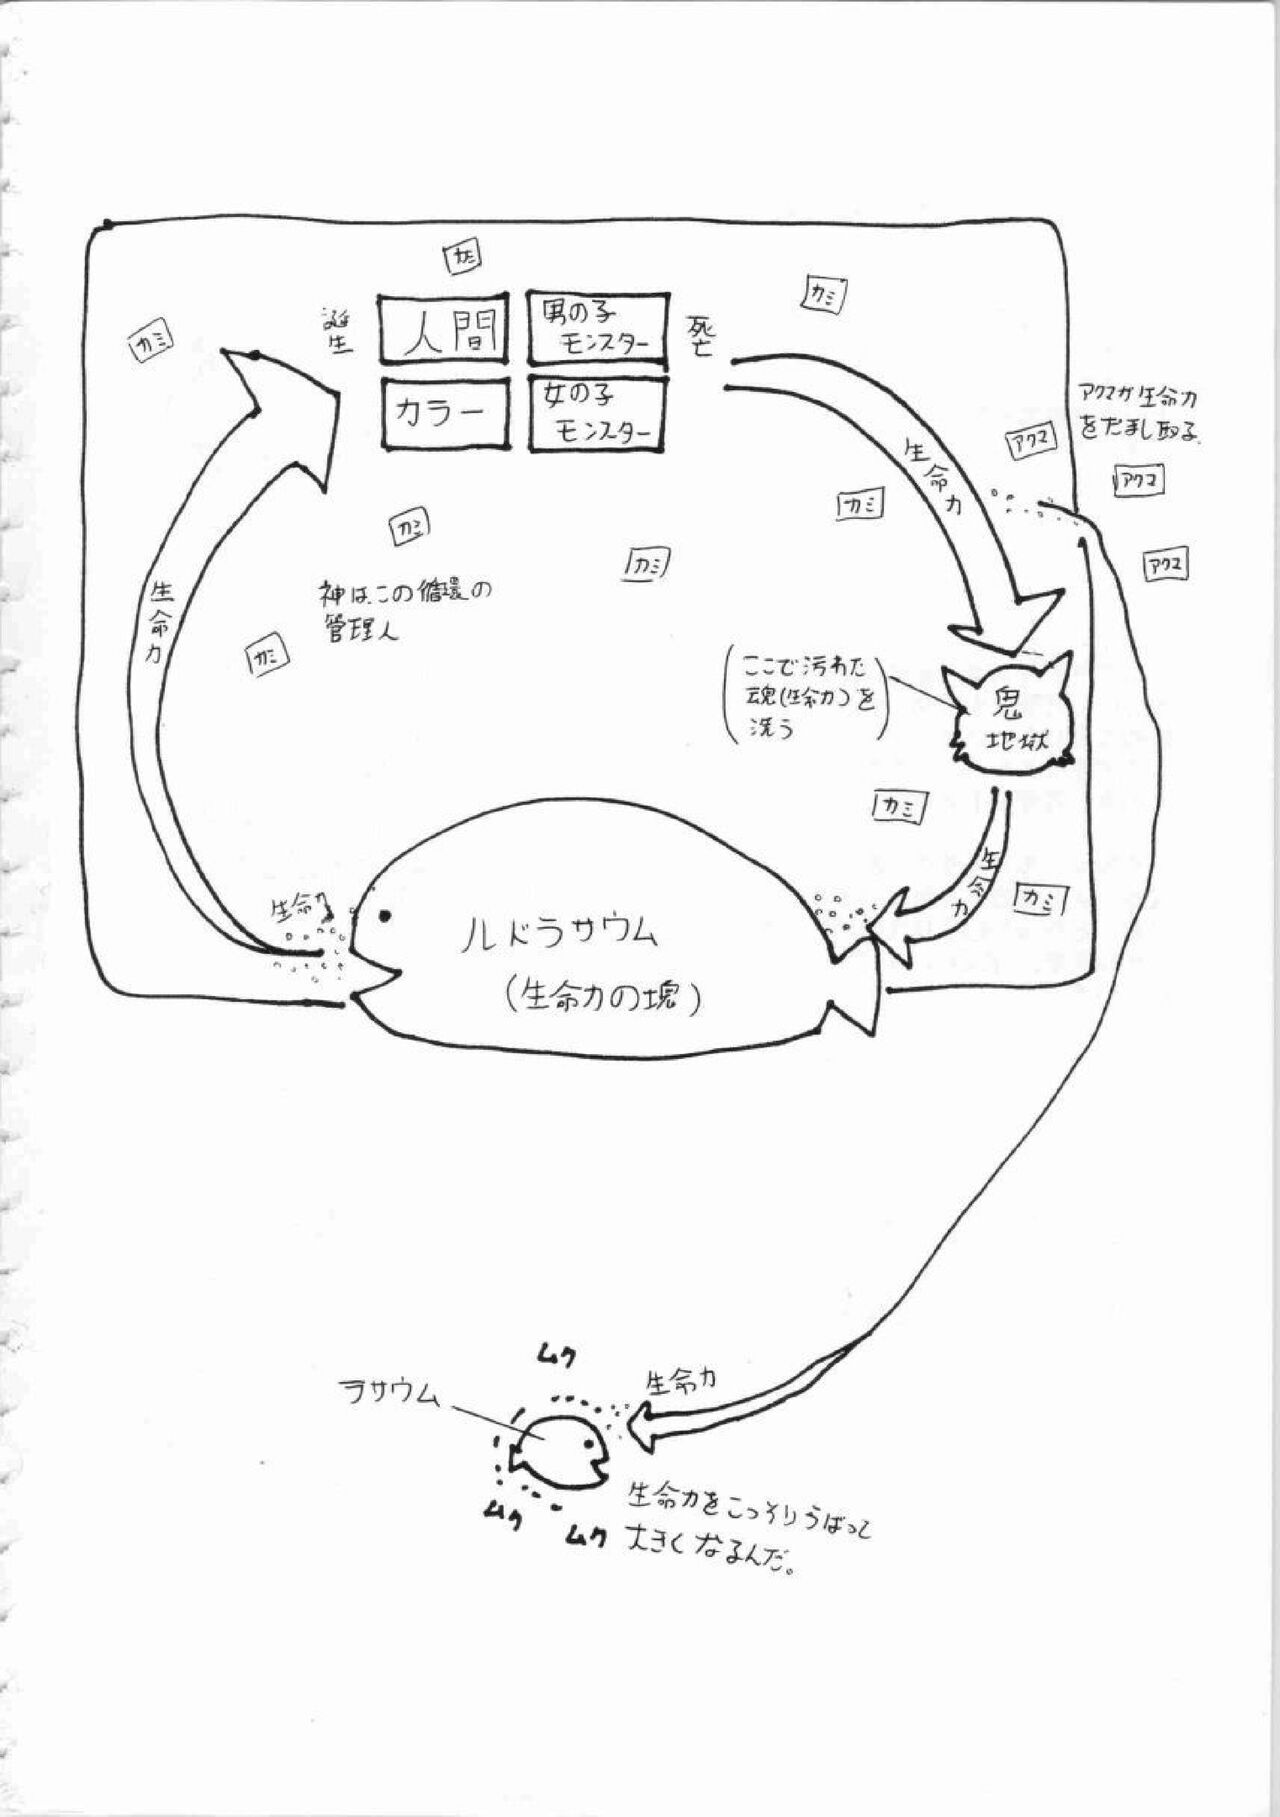 カミ
カミ
カミ
誕生
人間
男の子
モンスター
死亡
カラー
女の子
モンスター
アクマが生命力
をだまし取る.
アクマ
アクマ
アクマ
生命力
カミ
カミ
カミ
生命力
神は、この循環の
管理人
カミ
ここで汚れた
魂(生命力)を
洗う
鬼
地獄
カミ
生命力
カミ
生命力
ルドラサウム
(生命力の塊)
ムク
ラサウム
生命力
ムク
ムク
生命力をこっそりうばって
大きくなるんだ。